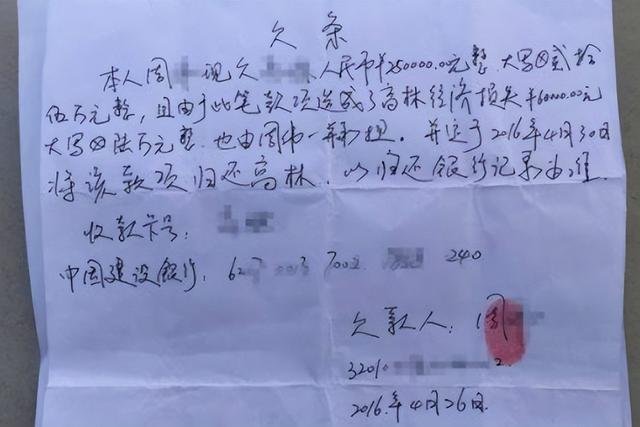 欠条
本人周 现欠 人民币¥250000.00元整 大写⊗贰拾
伍万元整,且由于此笔款项造成了高林经济损失¥60000.00元
大写⊗陆万元整.也由周伟一并承担.并定于2016年4月30日
将该款项归还高林.以归还银行记录为准.
收款卡号:
中国建设银行: 62 700 240
欠款人:周
3201 2
2016.年4月26日.